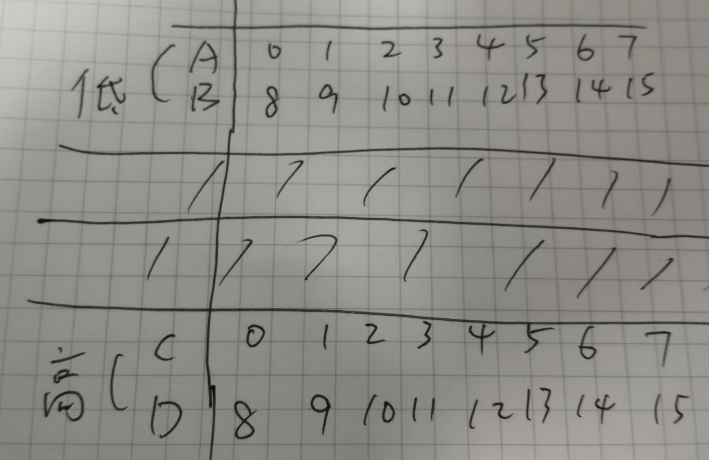 低 ( A 0 1 2 3 4 5 6 7
B 8 9 10 11 12 13 14 15
/ / / / / / /
/ / / / / / /
高 ( C 0 1 2 3 4 5 6 7
D 8 9 10 11 12 13 14 15